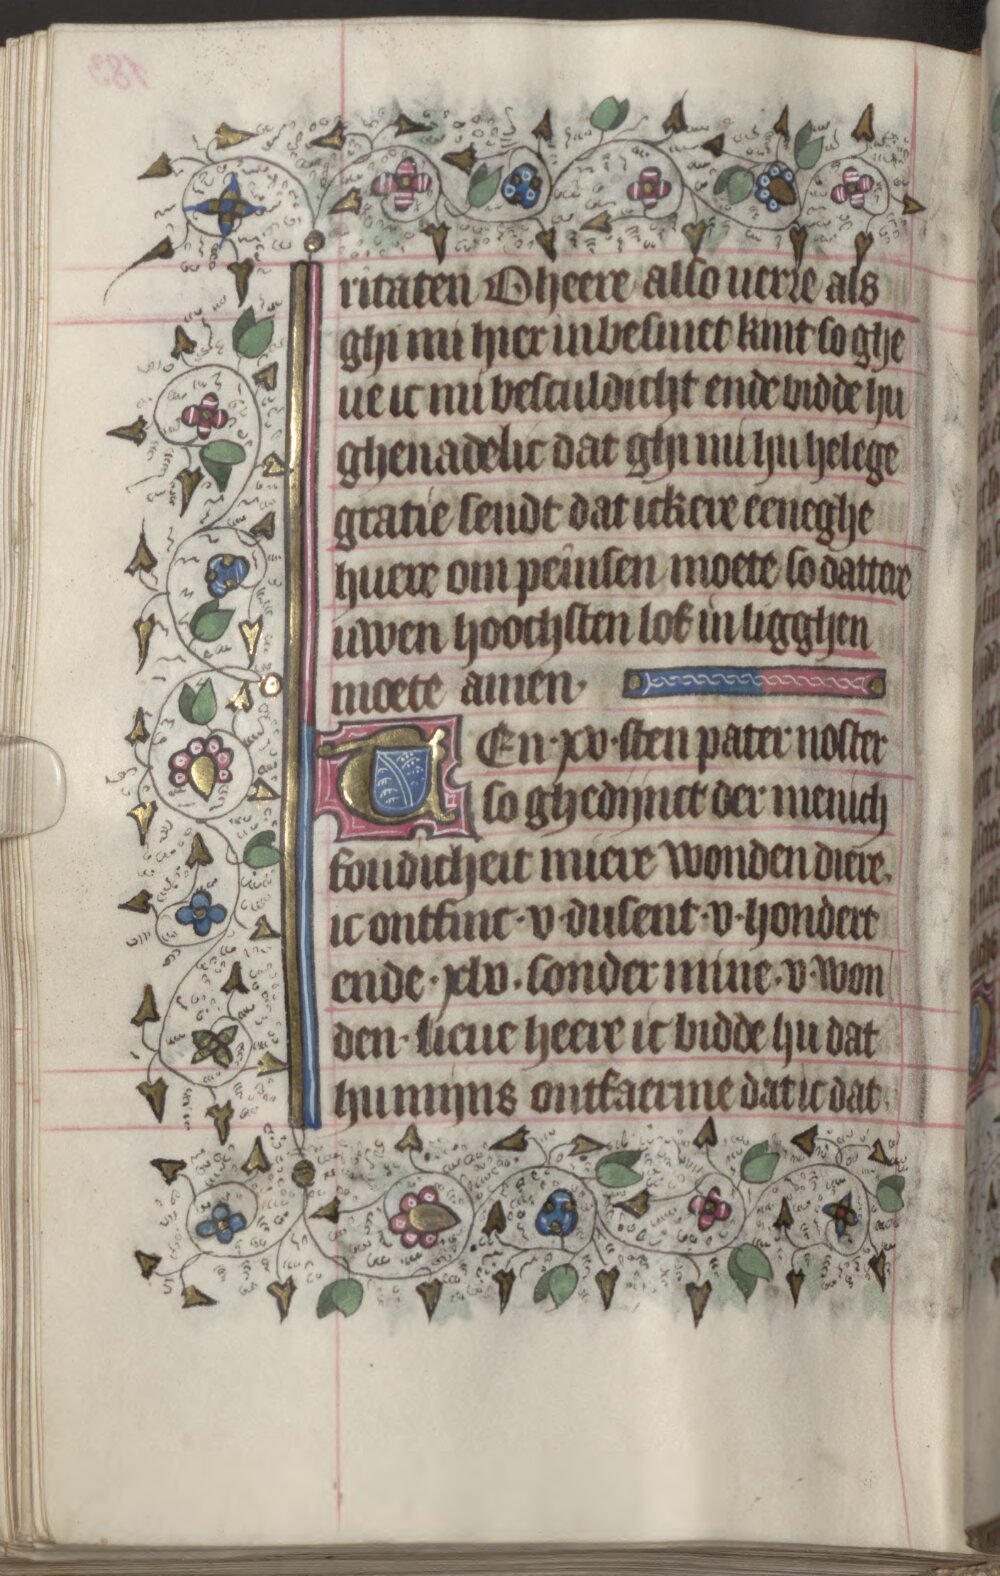 ritaten O heere also verre als
ghi mi hier in besmet kint so ghe
ve ic mi besculdicht ende bidde hu
ghenadelic dat ghi mi hu helege
gratie sendt dat ickere eeneghe
huere om peinsen moete so dattere
uwen hoochsten lof in ligghen
moete amen.
TEn .xv. sten pater noster
so ghedijnct der menich
foudicheit miere wonden diere.
ic ontfinc .v. dusent .v. hondert
ende .xlv. sonder mine .v. won
den. lieue heere ic bidde hu dat
hu mijns ontfaerme dat ic dat